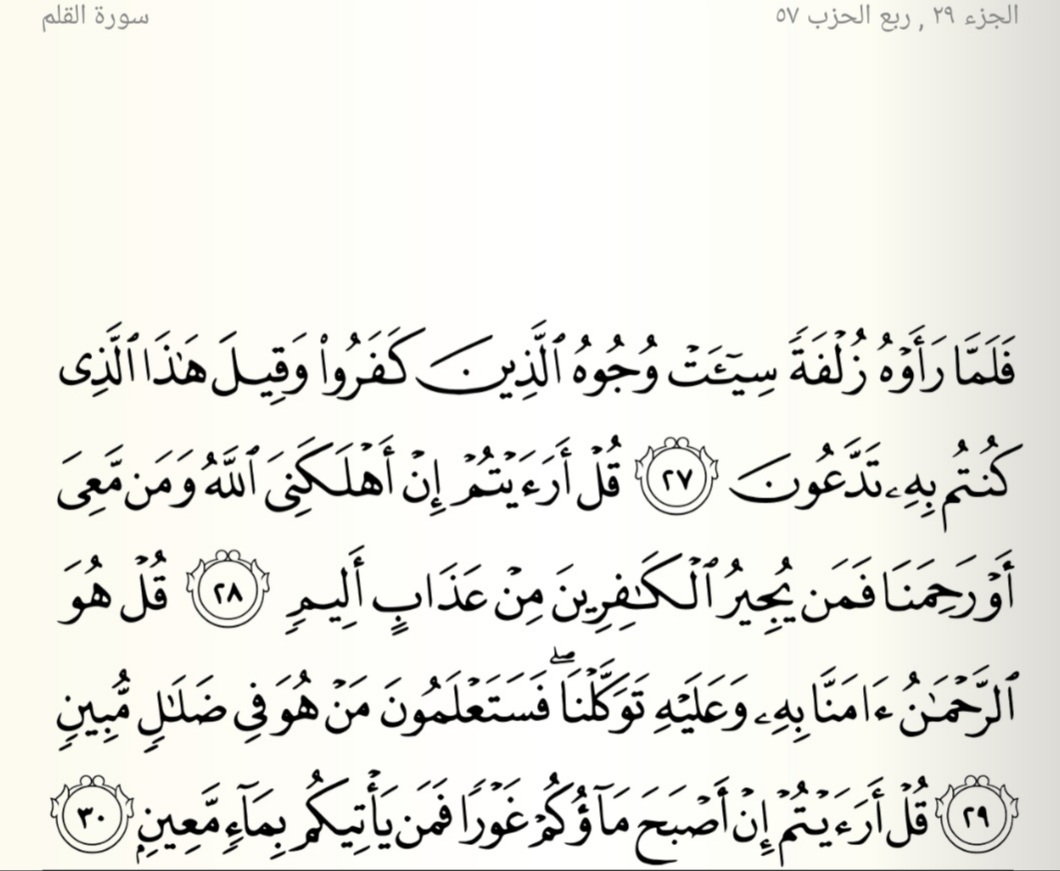 الجزء ٢٩ , ربع الحزب ٥٧
سورة القلم
فَلَمَّا رَأَوْهُ زُلْفَةً سِيٓـَٔتْ وُجُوهُ ٱلَّذِينَ كَفَرُوا۟ وَقِيلَ هَـٰذَا ٱلَّذِى
كُنتُم بِهِۦ تَدَّعُونَ ٢٧ قُلْ أَرَءَيْتُمْ إِنْ أَهْلَكَنِىَ ٱللَّهُ وَمَن مَّعِىَ
أَوْ رَحِمَنَا فَمَن يُجِيرُ ٱلْكَـٰفِرِينَ مِنْ عَذَابٍ أَلِيمٍ ٢٨ قُلْ هُوَ
ٱلرَّحْمَـٰنُ ءَامَنَّا بِهِۦ وَعَلَيْهِ تَوَكَّلْنَا ۖ فَسَتَعْلَمُونَ مَنْ هُوَ فِى ضَلَـٰلٍ مُّبِينٍ
٢٩ قُلْ أَرَءَيْتُمْ إِنْ أَصْبَحَ مَآؤُكُمْ غَوْرًا فَمَن يَأْتِيكُم بِمَآءٍ مَّعِينٍۭ ٣٠